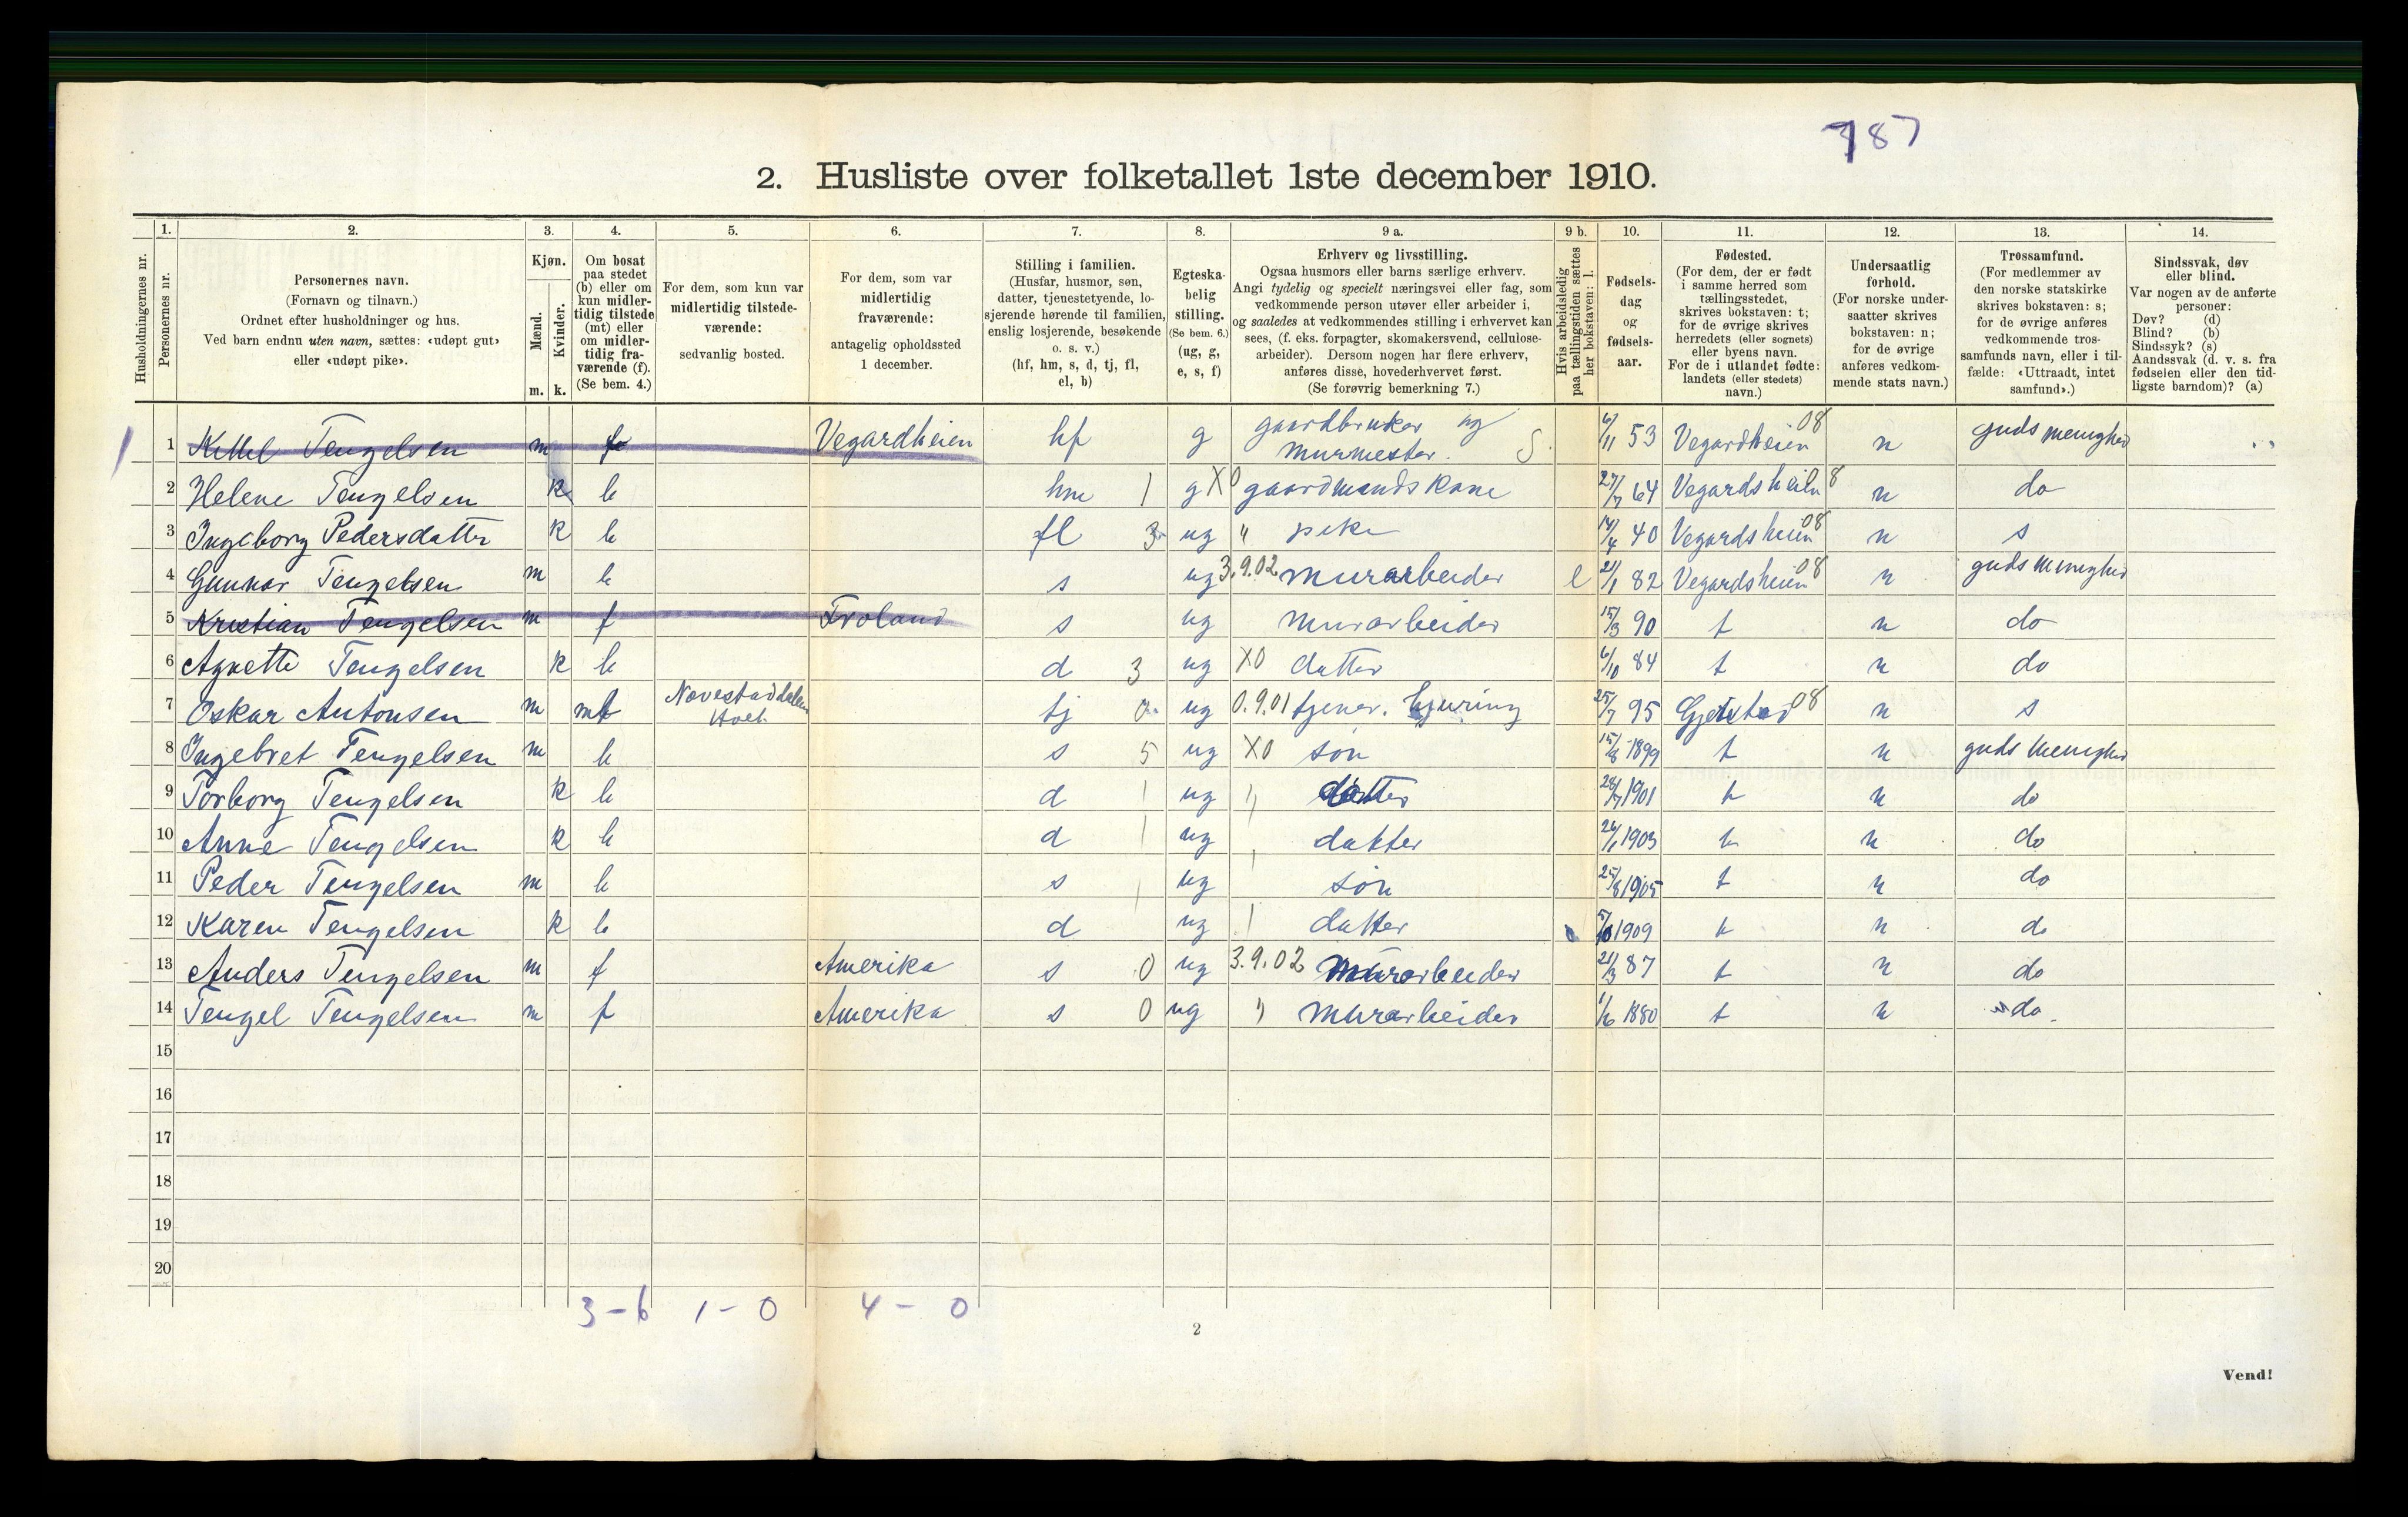 787
2. Husliste over folketallet 1ste december 1910.
Husholdningernes nr.
1.
Personernes nr.
2.
Personernes navn.
(Fornavn og tilnavn.)
Ordnet efter husholdninger og hus.
Ved barn endnu uten navn, sættes: «udøpt gut»
eller «udøpt pike».
3.
Kjøn.
Mænd.
Kvinder.
m. k.
4.
Om bosat
paa stedet
(b) eller om
kun midler-
tidig tilstede
(mt) eller
om midler-
tidig fra-
værende (f).
(Se bem. 4.)
5.
For dem, som kun var
midlertidig tilstede-
værende:
sedvanlig bosted.
6.
For dem, som var
midlertidig
fraværende:
antagelig opholdssted
1 december.
7.
Stilling i familien.
(Husfar, husmor, søn,
datter, tjenestetyende, lo-
sjerende hørende til familien,
enslig losjerende, besøkende
o. s. v.)
(hf, hm, s, d, tj, fl,
el, b)
8.
Egteska-
belig
stilling.
(Se bem. 6.)
(ug, g,
e, s, f)
9 a.
Erhverv og livsstilling.
Ogsaa husmors eller barns særlige erhverv.
Angi tydelig og specielt næringsvei eller fag, som
vedkommende person utøver eller arbeider i,
og saaledes at vedkommendes stilling i erhvervet kan
sees, (f. eks. forpagter, skomakersvend, cellulose-
arbeider). Dersom nogen har flere erhverv,
anføres disse, hovederhvervet først.
(Se forøvrig bemerkning 7.)
9 b.
Hvis arbeidsledig
paa tællingstiden sættes
her bokstaven: l.
10.
Fødsels-
dag
og
fødsels-
aar.
11.
Fødested.
(For dem, der er født
i samme herred som
tællingsstedet,
skrives bokstaven: t;
for de øvrige skrives
herredets (eller sognets)
eller byens navn.
For de i utlandet fødte:
landets (eller stedets)
navn.)
12.
Undersaatlig
forhold.
(For norske under-
saatter skrives
bokstaven: n;
for de øvrige
anføres vedkom-
mende stats navn.)
13.
Trossamfund.
(For medlemmer av
den norske statskirke
skrives bokstaven: s;
for de øvrige anføres
vedkommende tros-
samfunds navn, eller i til-
fælde: «Uttraadt, intet
samfund».)
14.
Sindssvak, døv
eller blind.
Var nogen av de anførte
personer:
Døv? (d)
Blind? (b)
Sindssyk? (s)
Aandssvak (d. v. s. fra
fødselen eller den tid-
ligste barndom)? (a)
1 Kittel Tengelsen m f Vegardheien hf g gaardbruker og murmester. S. 6/11 53 Vegardheien 08 n guds menighed
2 Helene Tengelsen k b hm 1 g X0 gaardmands kone 27/7 64 Vegardsheien 8 n do
3 Ingeborg Pedersdatter k b fl 3 ug " pike 14/4 40 Vegardsheien 08 n s
4 Gunnar Tengelsen m b s ug 3.9.02 murarbeider l 21/1 82 Vegardsheien 08 n guds menighed
5 Kristian Tengelsen m f Froland s ug murarbeider 15/3 90 t n do
6 Agnette Tengelsen k b d 3 ug X0 datter 6/10 84 t n do
7 Oskar Antonsen m mt Holt tj 0 ug 0.9.01 tjener. hjuring 25/7 95 Gjerstad 08 n s
8 Ingebret Tengelsen m b s 5 ug X0 søn 15/8 1899 t n guds menighed
9 Torborg Tengelsen k b d 1 ug " datter 28/7 1901 t n do
10 Anne Tengelsen k b d 1 ug datter 26/1 1903 t n do
11 Peder Tengelsen m b s ug søn 25/8 1905 t n do
12 Karen Tengelsen k b d ug datter 1909 t n do
13 Anders Tengelsen m f Amerika s 0 ug 3.9.02 murarbeider 21/3 87 t n do
14 Tengel Tengelsen m f Amerika s 0 ug " murarbeider 1/6 1880 t n do
15
16
17
18
19
20
3 - 6 1 - 0 4 - 0
2
Vend!